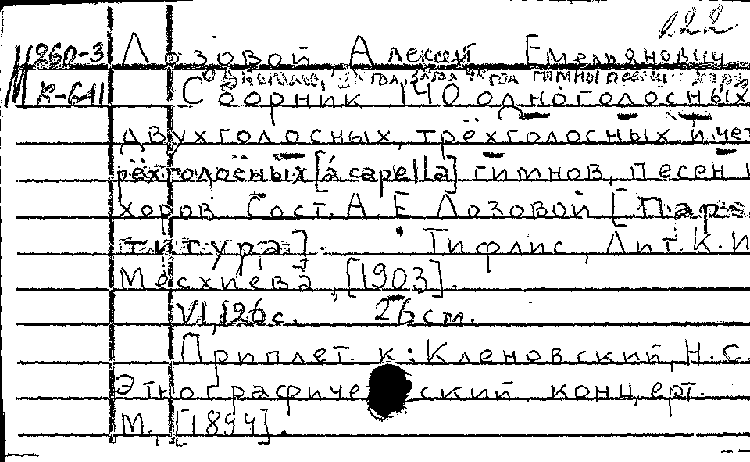 222
М 960-3 Лозовой Алексей Емельянович
К-641 Сборник 140 одноголосных
двухголосных, трёхголосных и чет
рёхголосных [a capella] гимнов, песен и
хоров Сост. А. Е Лозовой [Пар-
титура]. Тифлис, Лит. К. И
Месхиева, [1903].
VI, 126 с. 26 cm.
Приплет. к: Кленовский, Н. С.
Этнографический концерт.
М., [1894].